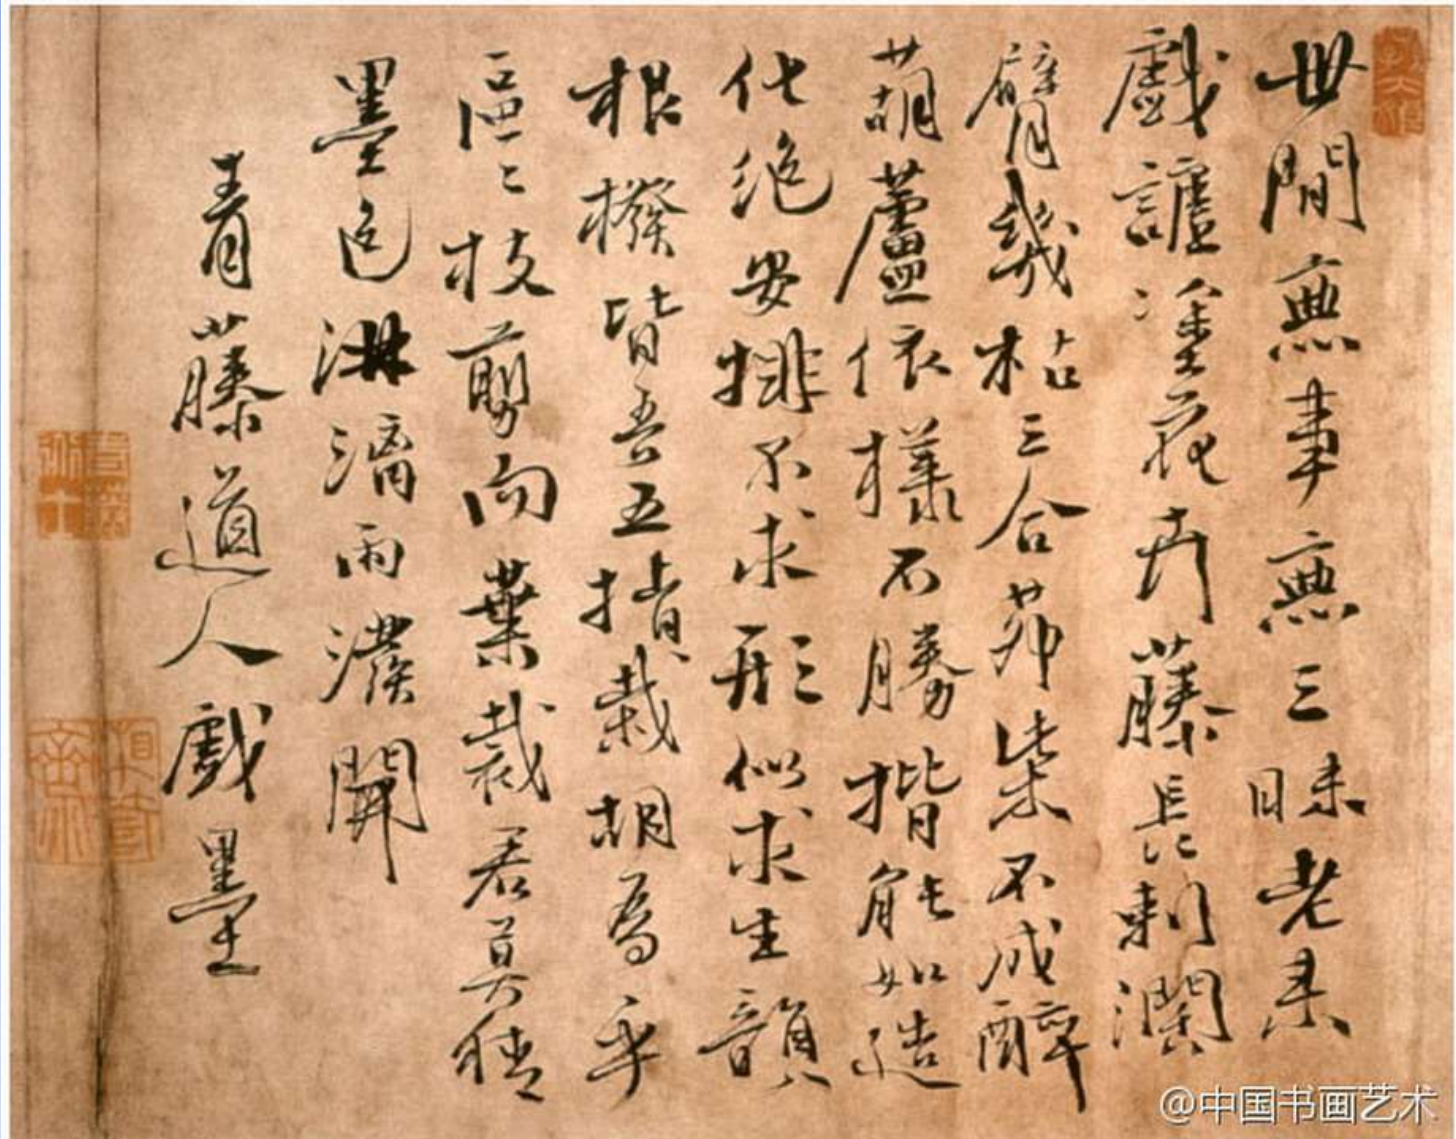 世間無事無三昧老来
戲謔塗花卉藤長刺濶
臂幾枯三合茅柴不成醉
葫蘆依樣不勝揩能如造
化絶安排不求形似求生韻
根撥皆吾五指栽胡為乎
區〻枝剪向葉裁君莫猜
墨色淋漓雨潑開
青藤道人戲墨
@中国书画艺术